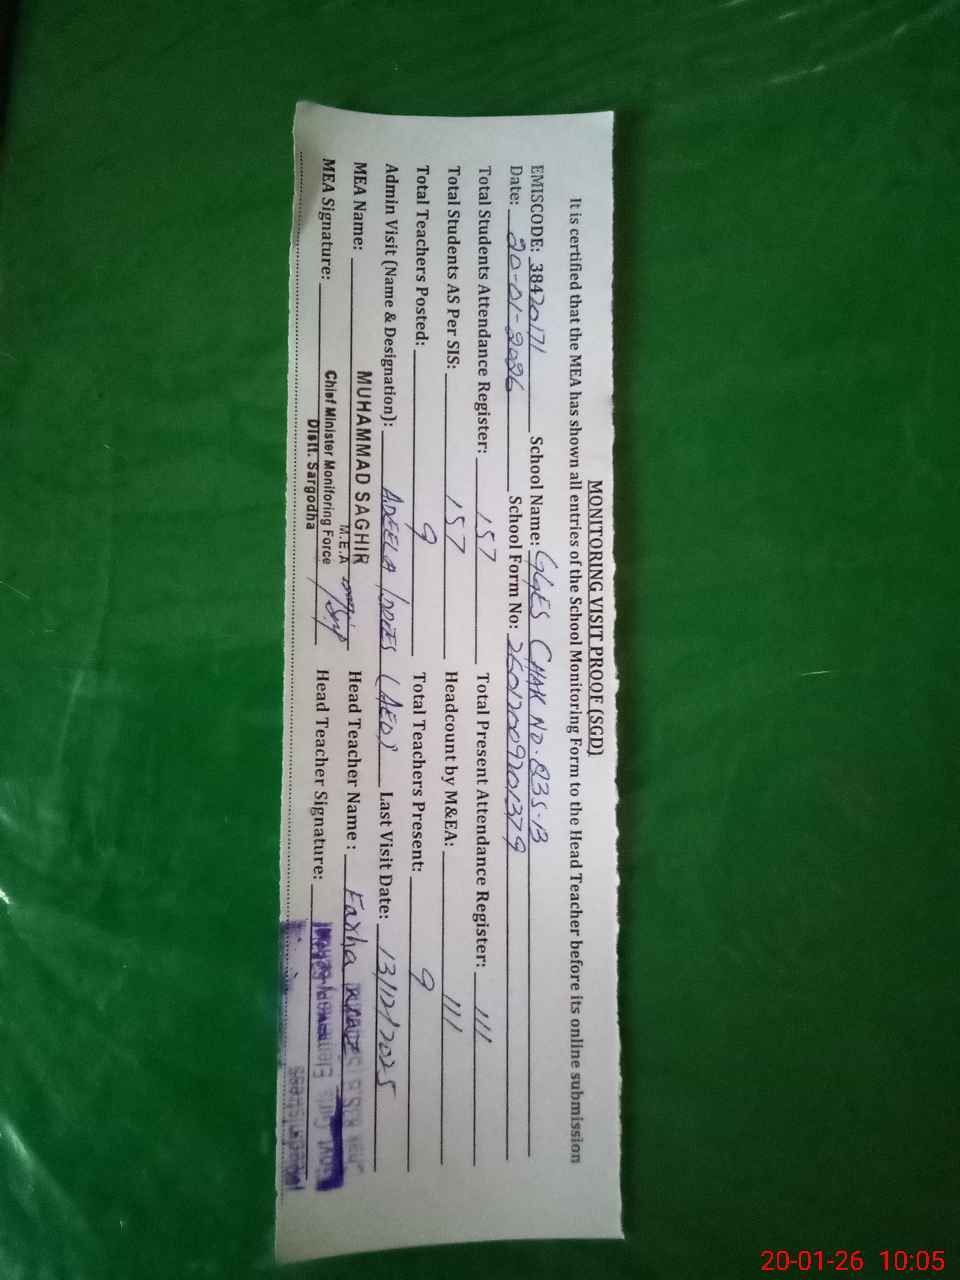 MONITORING VISIT PROOF (SGD)
It is certified that the MEA has shown all entries of the School Monitoring Form to the Head Teacher before its online submission
EMISCODE: 38420171 School Name: GGES CHAK NO. 835-B
Date: 20-01-2026 School Form No: 26012009201379
Total Students Attendance Register: 157 Total Present Attendance Register: 111
Total Students AS Per SIS: 157 Headcount by M&EA: 111
Total Teachers Posted: 9 Total Teachers Present: 9
Admin Visit (Name & Designation): ADEELA IDREES (AEO) Last Visit Date: 13/12/2025
MEA Name: MUHAMMAD SAGHIR Head Teacher Name: Farha
M.E.A
MEA Signature: Chief Minister Monitoring Force Head Teacher Signature:
Distt. Sargodha
20-01-26 10:05